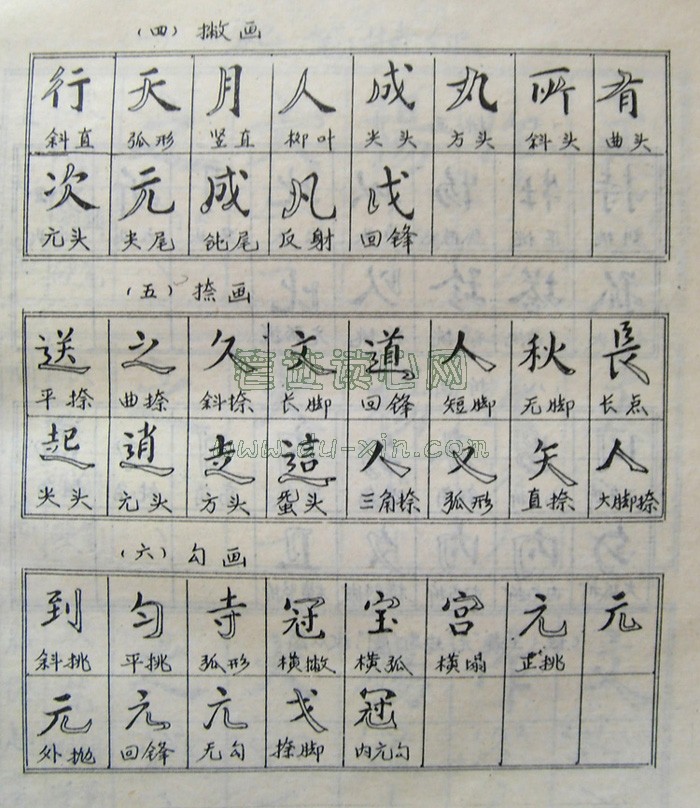 (四) 撇画
行 天 月 人 成 丸 所 有
斜直 弧形 竖直 柳叶 尖头 方头 斜头 曲头
次 元 成 凡 戊
元头 尖尾 钝尾 反射 回锋
(五) 捺画
送 之 久 文 道 人 秋 長
平捺 曲捺 斜捺 长脚 回锋 短脚 无脚 长点
起 逍 走 這 人 又 矢 人
尖头 元头 方头 蚕头 三角捺 弧形 直捺 大脚捺
(六) 勾画
到 匀 寺 冠 宝 宫 元 元
斜挑 平挑 弧形 横撇 横弧 横塌 正挑
元 元 亢 戈 冠
外抛 回锋 无勾 捺脚 内元勾